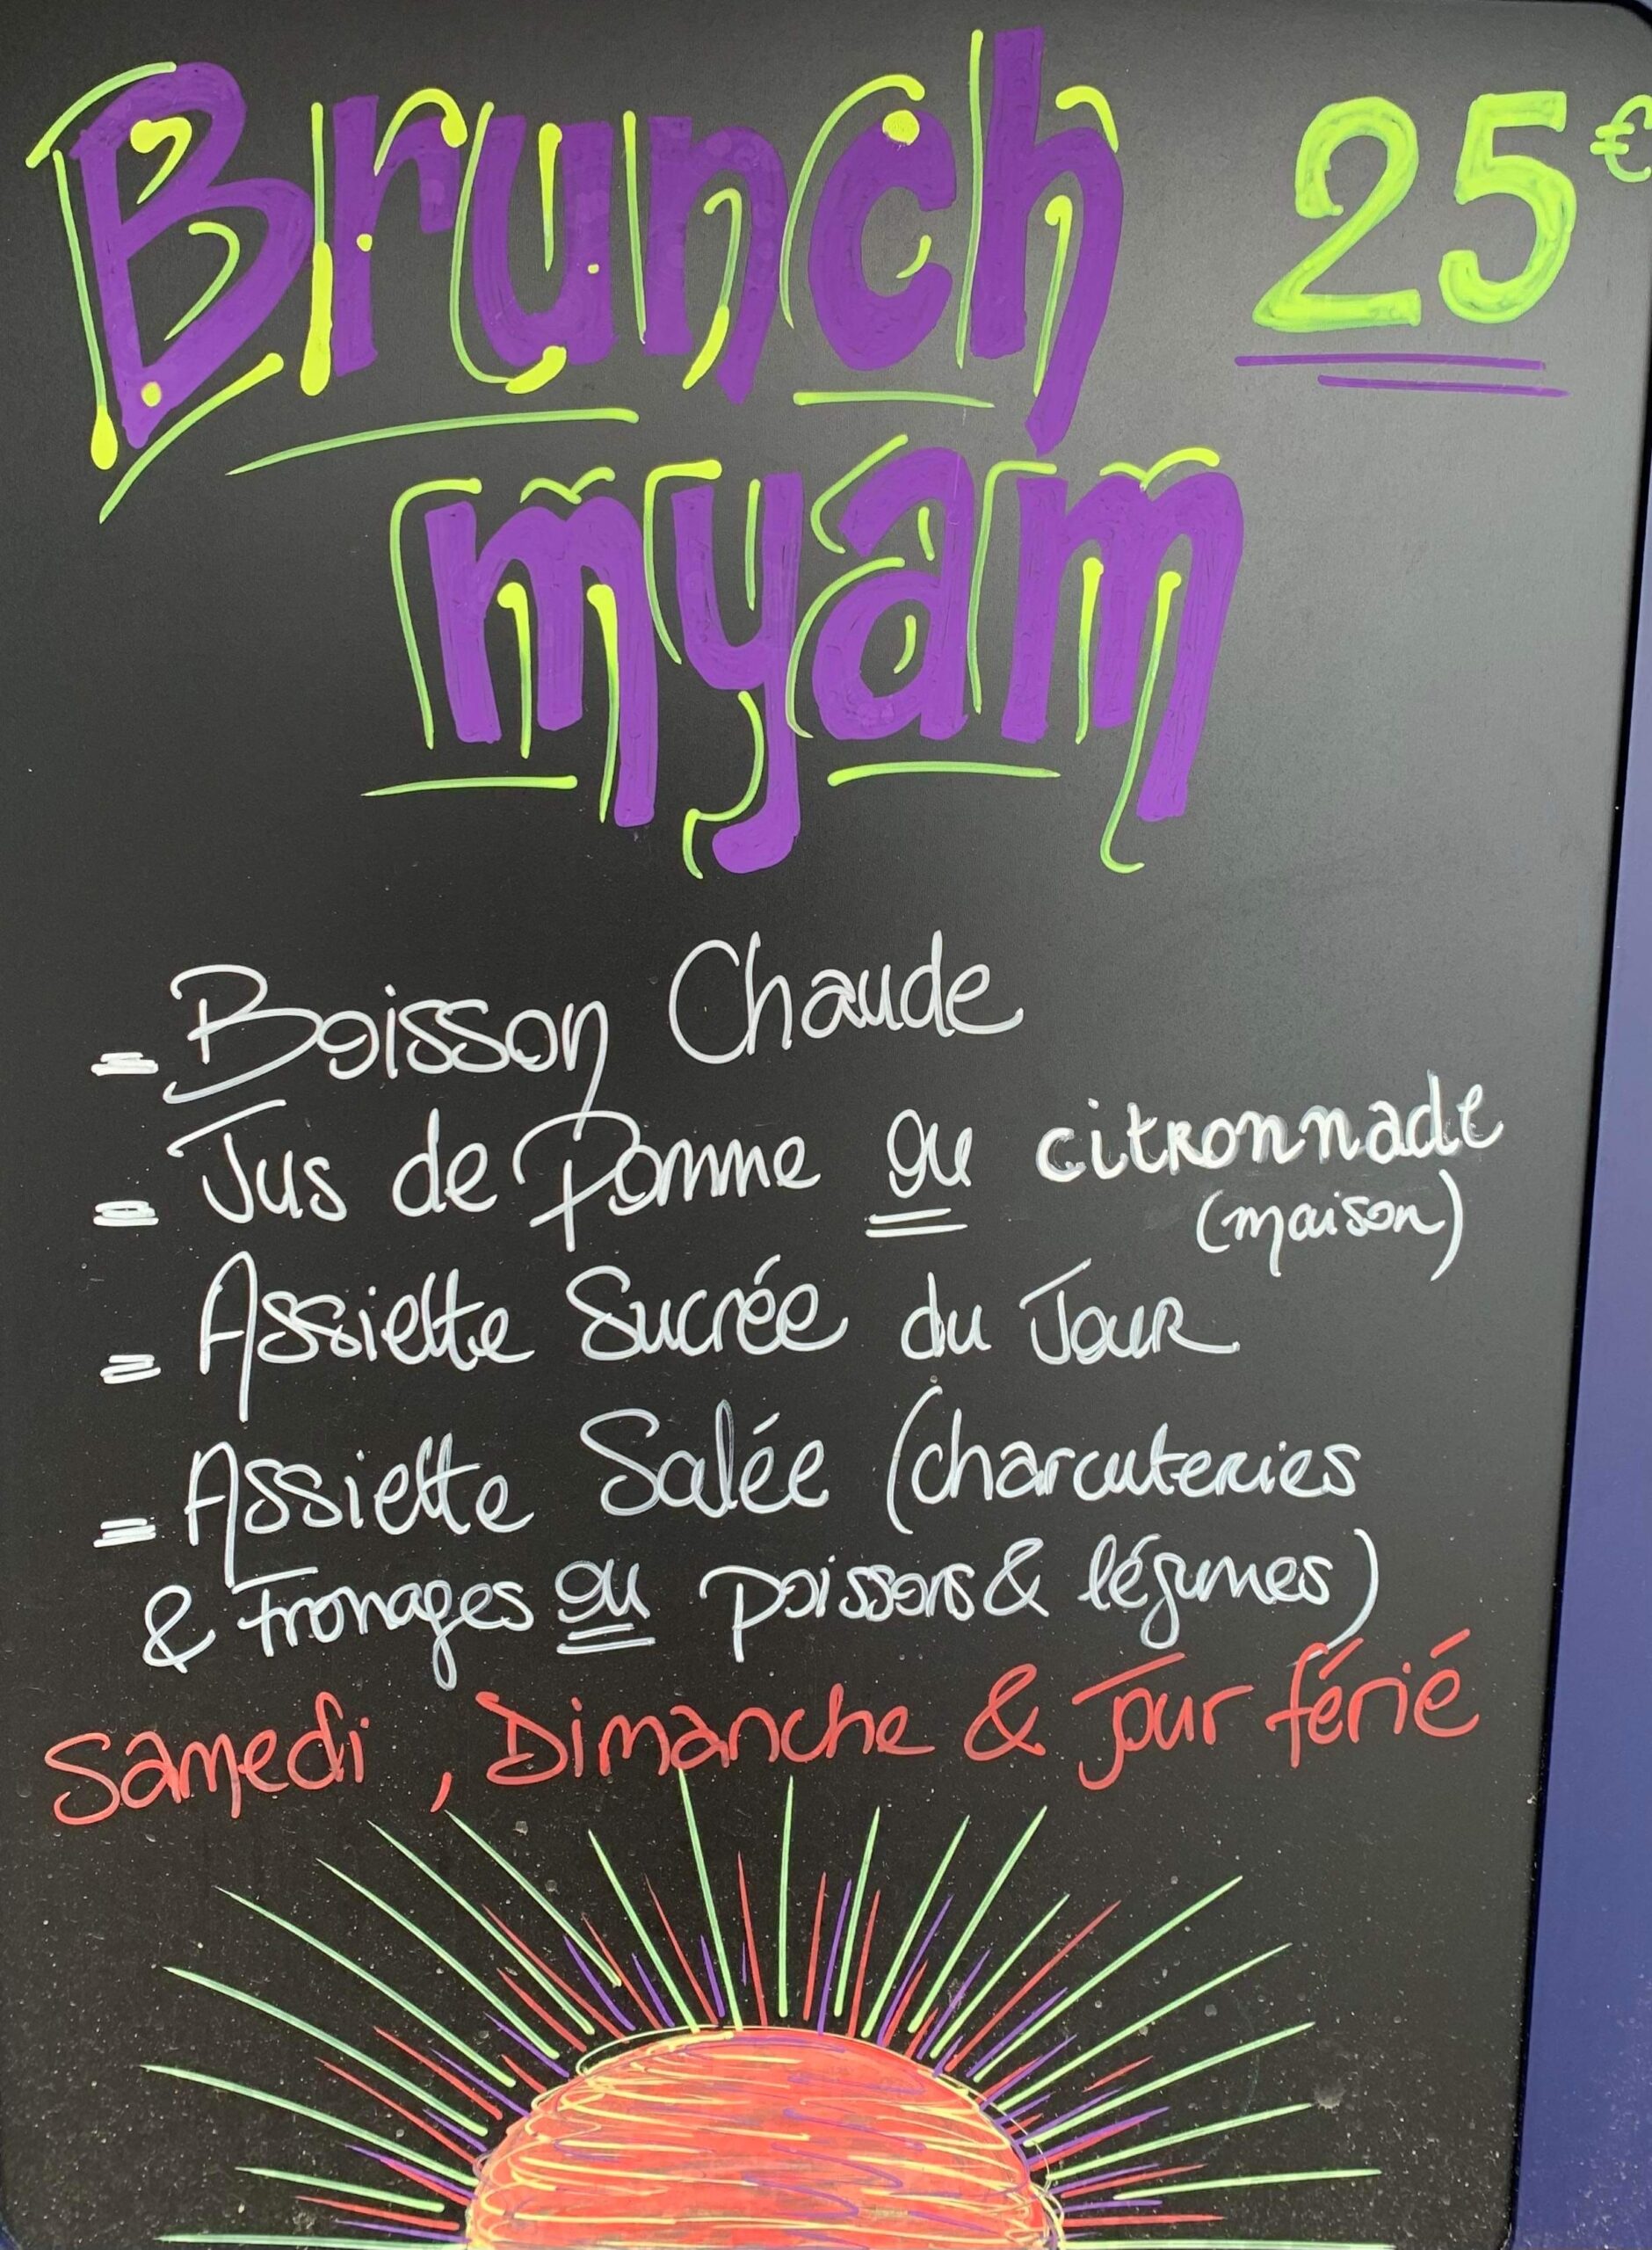 Brunch 25€
myam
- Boisson Chaude
- Jus de Pomme ou citronnade
(maison)
- Assiette Sucrée du Jour
- Assiette Salée (charcuteries
& Fromages ou poissons & légumes)
Samedi, Dimanche & Jour férié